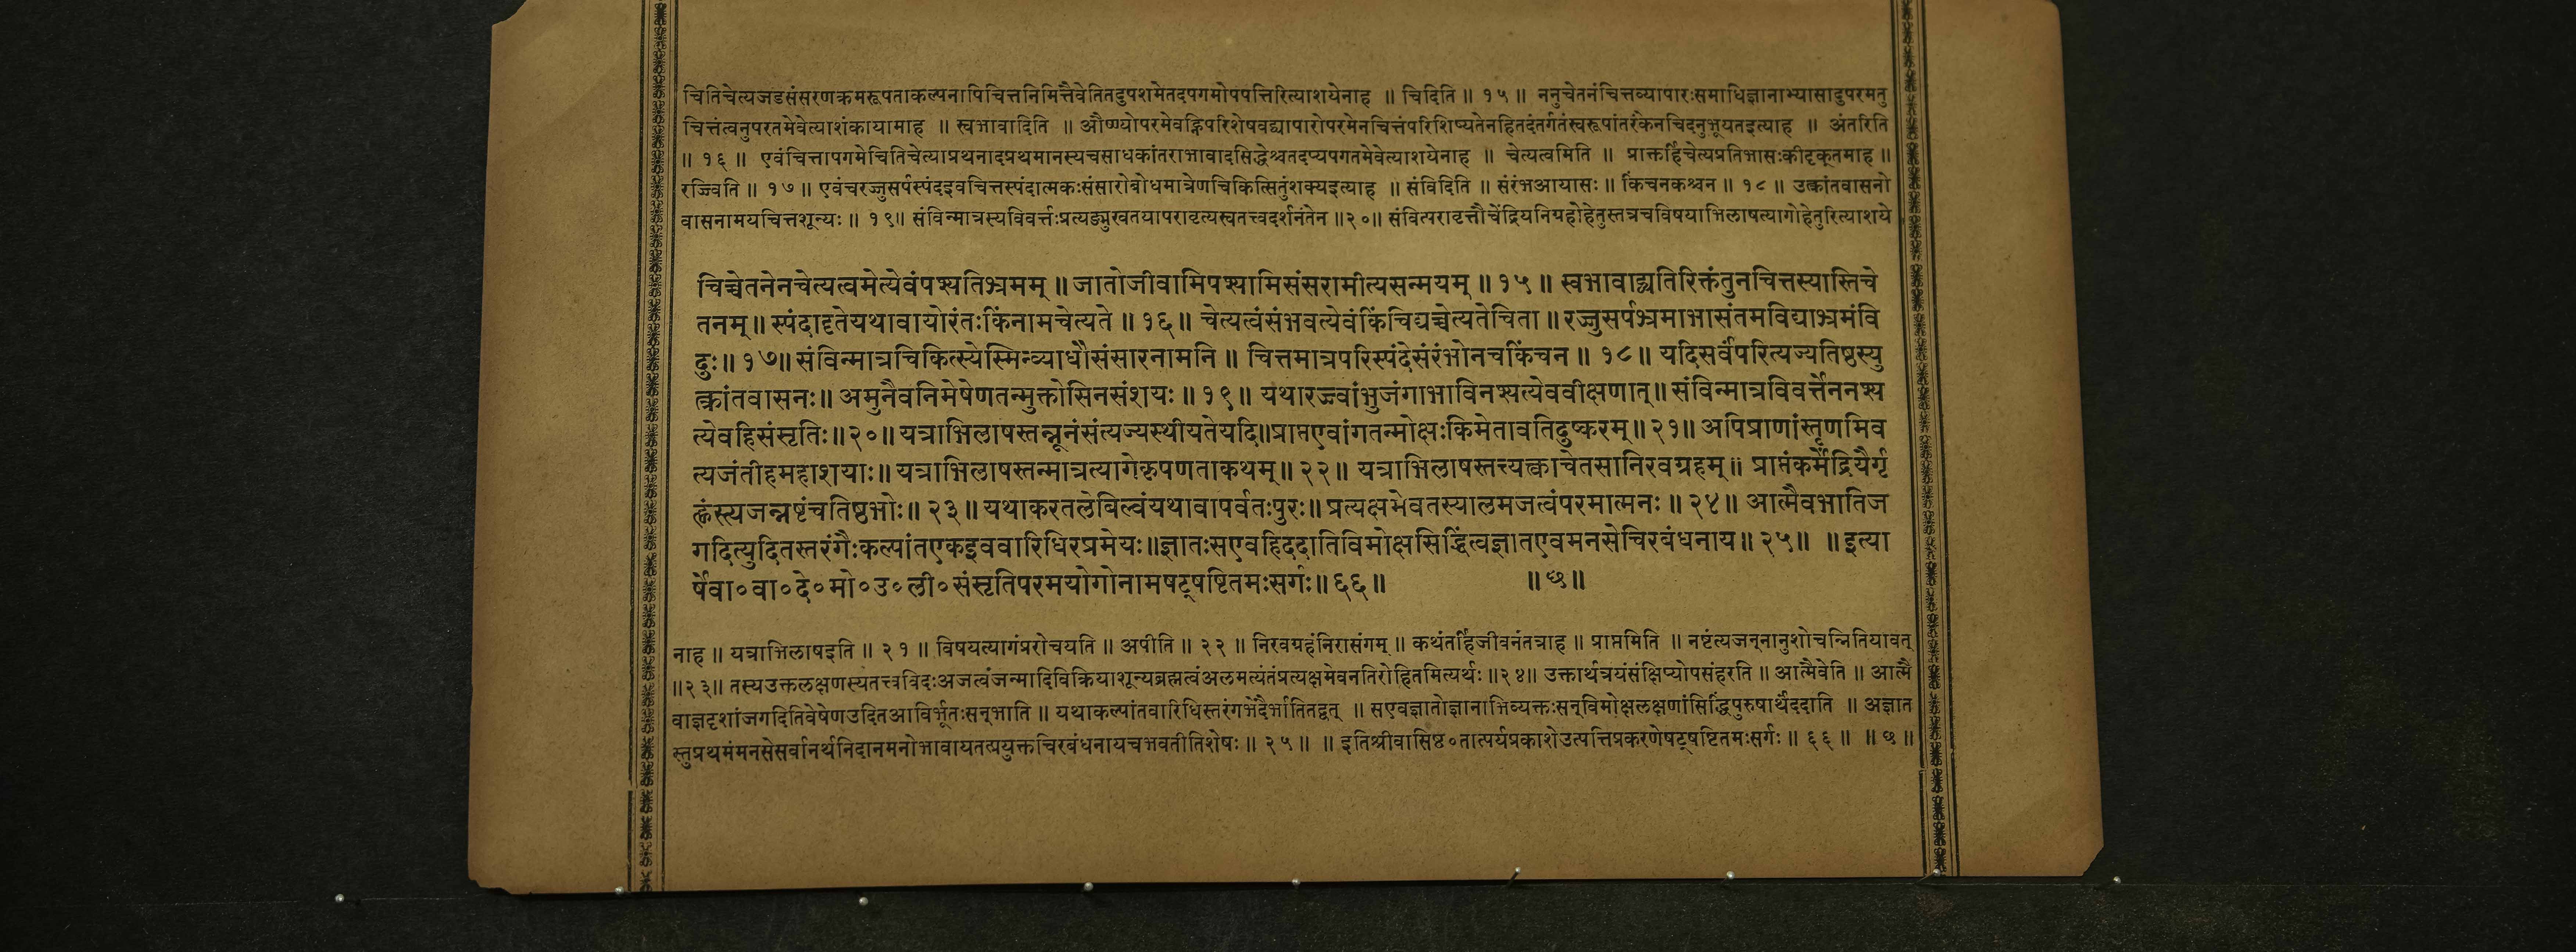 चितिचेत्यजडसंसरणक्रमरूपताकल्पनापिचित्तनिमित्तैवेतितदुपशमेतदपगमोपपत्तिरित्याशयेनाह ॥ चिदिति ॥ १५ ॥ ननुचेतनंचित्तव्यापारःसमाधिज्ञानाभ्यासादुपरमतु
चित्तंत्वनुपरतमेवेत्याशंकायामाह ॥ स्वभावादिति ॥ औष्ण्योपरमेवह्निपरिशेषवद्व्यापारोपरमेनचित्तंपरिशिष्यतेनहितदंतर्गतंस्वरूपांतरंकेनचिदनुभूयतइत्याह ॥ अंतरिति
॥ १६ ॥ एवंचित्तापगमेचितिचेत्याप्रथनादप्रथमानस्यचसाधकांतराभावादसिद्धेश्चतदप्यपगतमेवेत्याशयेनाह ॥ चेत्यत्वमिति ॥ प्राक्तर्हिचेत्यप्रतिभासःकीदृक्तमाह ॥
रज्ज्विति ॥ १७ ॥ एवंचरज्जुसर्पस्पंदइवचित्तस्पंदात्मकःसंसारोबोधमात्रेणचिकित्सितुंशक्यइत्याह ॥ संविदिति ॥ संरंभआयासः ॥ किंचनकश्चन ॥ १८ ॥ उत्क्रांतवासनो
वासनामयचित्तशून्यः ॥ १९॥ संविन्मात्रस्यविवर्त्तःप्रत्यङ्मुखतयापरावृत्यस्वतत्त्वदर्शनंतेन ॥२०॥ संवित्परावृत्तौचेंद्रियनिग्रहोहेतुस्तत्रचविषयाभिलाषत्यागोहेतुरित्याशये
चिच्चेतनेनचेत्यत्वमेत्येवंपश्यतिभ्रमम् ॥ जातोजीवामिपश्यामिसंसरामीत्यसन्मयम् ॥ १५ ॥ स्वभावाद्व्यतिरिक्तंतुनचित्तस्यास्तिचे
तनम् ॥ स्पंदादृतेयथावायोरंतःकिंनामचेत्यते ॥ १६ ॥ चेत्यत्वंसंभवत्येवंकिंचिद्यच्चेत्यतेचिता ॥ रज्जुसर्पभ्रमाभासंतमविद्याभ्रमंवि
दुः ॥ १७ ॥ संविन्मात्रचिकित्स्येस्मिन्व्याधौसंसारनामनि ॥ चित्तमात्रपरिस्पंदेसंरंभोनचकिंचन ॥ १८ ॥ यदिसर्वंपरित्यज्यतिष्ठस्यु
त्क्रांतवासनः ॥ अमुनैवनिमेषेणतन्मुक्तोसिनसंशयः ॥ १९ ॥ यथारज्ज्वांभुजंगाभाविनश्यत्येववीक्षणात् ॥ संविन्मात्रविवर्त्तेननश्य
त्येवहिसंसृतिः ॥ २० ॥ यत्राभिलाषस्तन्नूनंसंत्यज्यस्थीयतेयदि॥प्राप्तएवांगतन्मोक्षःकिमेतावतिदुष्करम् ॥ २१ ॥ अपिप्राणांस्तृणमिव
त्यजंतीहमहाशयाः ॥ यत्राभिलाषस्तन्मात्रत्यागेकृपणताकथम् ॥ २२ ॥ यत्राभिलाषस्तत्त्यक्त्वाचेतसानिरवग्रहम् ॥ प्राप्तंकर्मेंद्रियैर्गृ
ह्णंस्त्यजन्नष्टंचतिष्ठभोः ॥ २३ ॥ यथाकरतलेबिल्वंयथावापर्वतःपुरः ॥ प्रत्यक्षमेवतस्यालमजत्वंपरमात्मनः ॥ २४ ॥ आत्मैवभातिज
गदित्युदितस्तरंगैःकल्पांतएकइववारिधिरप्रमेयः ॥ज्ञातःसएवहिददातिविमोक्षसिद्धिंत्वज्ञातएवमनसेचिरबंधनाय ॥ २५ ॥ ॥ इत्या
र्षेवा०वा०दे०मो०उ०ली०संसृतिपरमयोगोनामषट्षष्टितमःसर्गः ॥ ६६ ॥ ॥ छ ॥
नाह ॥ यत्राभिलाषइति ॥ २१ ॥ विषयत्यागंप्ररोचयति ॥ अपीति ॥ २२ ॥ निरवग्रहंनिरासंगम् ॥ कथंतर्हिजीवनंतत्राह ॥ प्राप्तमिति ॥ नष्टंत्यजन्नानुशोचन्नितियावत्
॥२३॥ तस्यउक्तलक्षणस्यतत्त्वविदःअजत्वंजन्मादिविक्रियाशून्यब्रह्मत्वंअलमत्यंतंप्रत्यक्षमेवनतिरोहितमित्यर्थः ॥२४॥ उक्तार्थत्रयंसंक्षिप्योपसंहरति ॥ आत्मैवेति ॥ आत्मै
वाज्ञदृशांजगदितिवेषेणउदितआविर्भूतःसन्भाति ॥ यथाकल्पांतवारिधिस्तरंगभेदैर्भातितद्वत् ॥ सएवज्ञातोज्ञानाभिव्यक्तःसन्विमोक्षलक्षणांसिद्धिंपुरुषार्थंददाति ॥ अज्ञात
स्तुप्रथमंमनसेसर्वानर्थनिदानमनोभावायतत्प्रयुक्तचिरबंधनायचभवतीतिशेषः ॥ २५ ॥ ॥ इतिश्रीवासिष्ठ०तात्पर्यप्रकाशेउत्पत्तिप्रकरणेषट्षष्टितमःसर्गः ॥ ६६ ॥ ॥ छ ॥